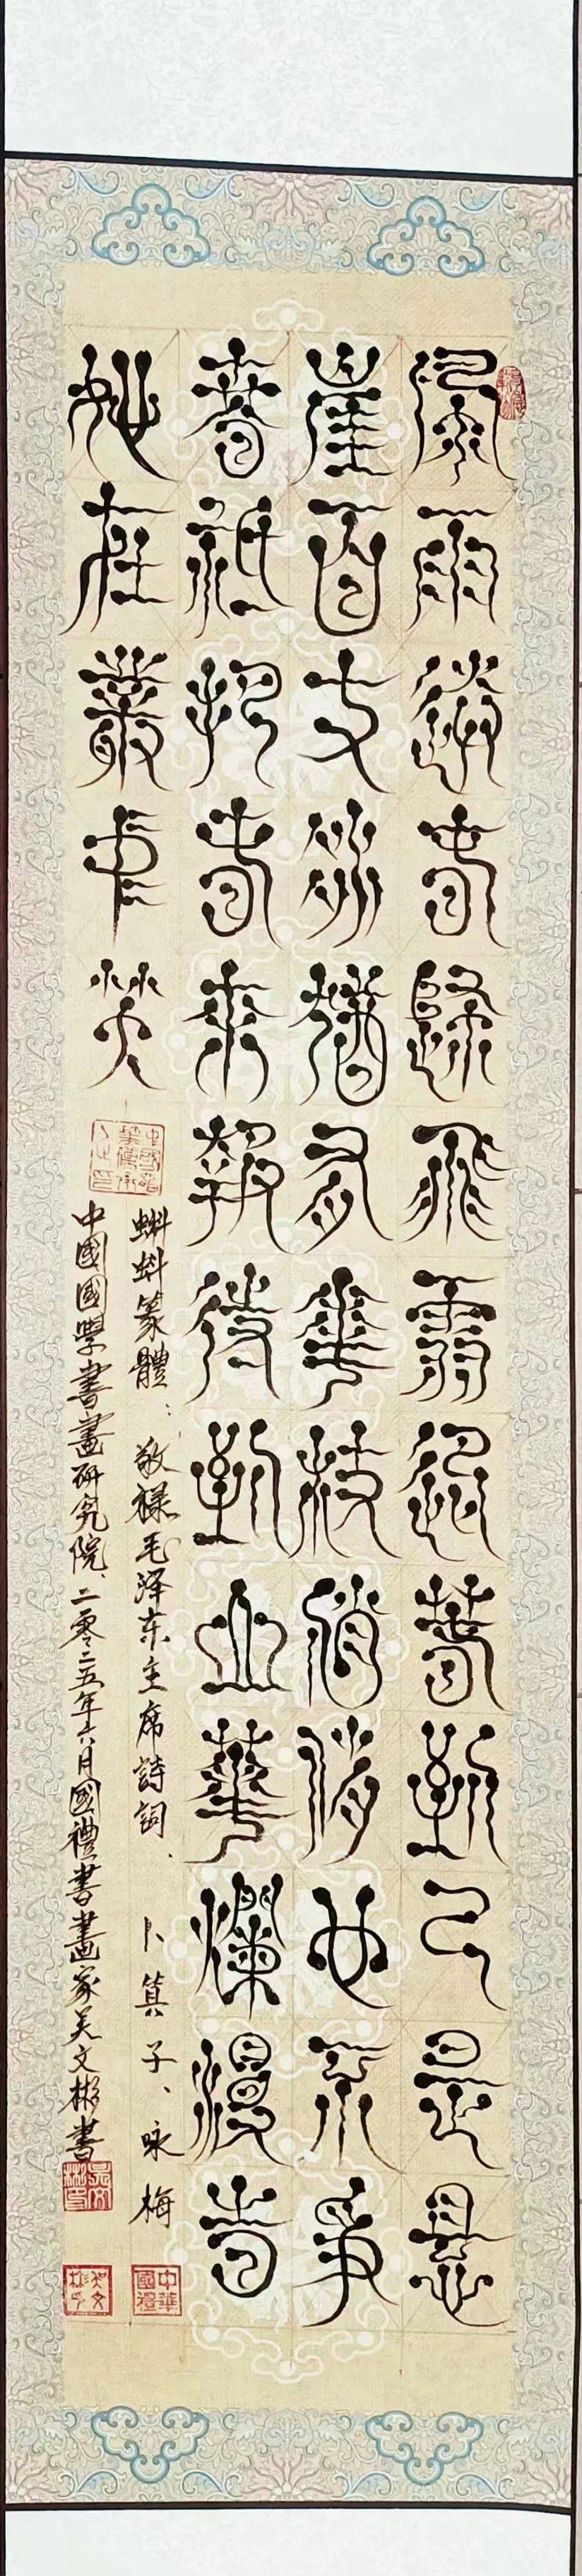 風雨送春歸飛雪迎春到已是懸
崖百丈冰猶有華枝俏俏也不爭
春祇把春來報待到山華爛漫時
她在叢中笑
蝌蚪篆體:敬禄毛泽东主席詩詞、卜算子、咏梅
中國國學書畫研究院、二零二五年六月國禮書畫家吴文彬書
中華國禮